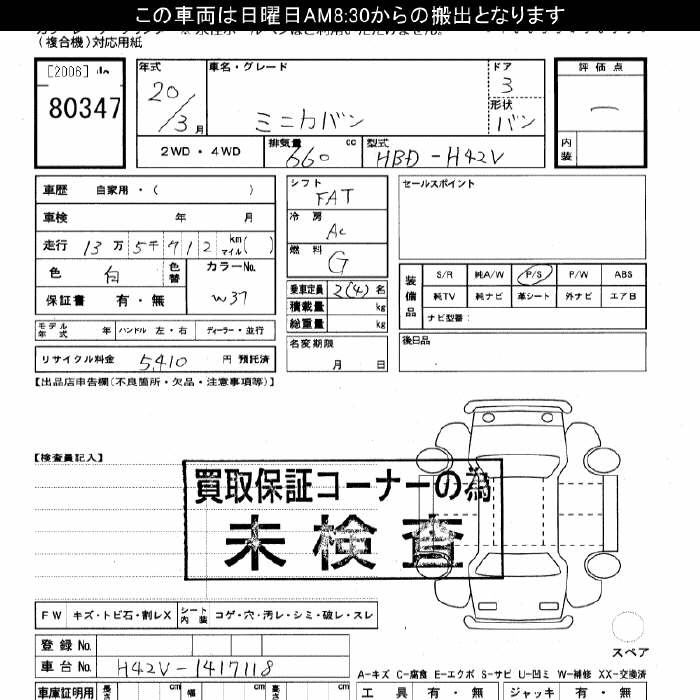 この車両は日曜日AM8:30からの搬出となります
(複合機)対応用紙
[2006]
80347
年式 20/3月
車名・グレード
ミニカバン
ドア 3
形状 バン
評価点
内装
2WD・4WD
排気量 660 cc
型式 HBD-H42V
車歴 自家用・( )
車検 年 月
走行 13万5千912 km マイル( )
色 白 色替 カラーNo. W37
保証書 有・無
モデル年式 年 ハンドル 左・右 ディーラー・並行
リサイクル料金 5,410 円 預託済
シフト FAT
冷房 AC
燃料 G
乗車定員 2(4)名
積載量 kg
総重量 kg
名変期限 月 日
セールスポイント
装備品
S/R 純A/W P/S P/W ABS
純TV 純ナビ 革シート 外ナビ エアB
ナビ型番:
後日品
【出品店申告欄(不良箇所・欠品・注意事項等)】
【検査員記入】
買取保証コーナーの為
未検査
FW キズ・トビ石・割レX シート内装 コゲ・穴・汚レ・シミ・破レ・スレ
スペア
登録No.
車台No. H42V-1417118
A-キズ C-腐食 E-エクボ S-サビ U-凹ミ W-補修 XX-交換済
車庫証明用 長さ cm 幅 cm 高さ cm
工具 有・無 ジャッキ 有・無